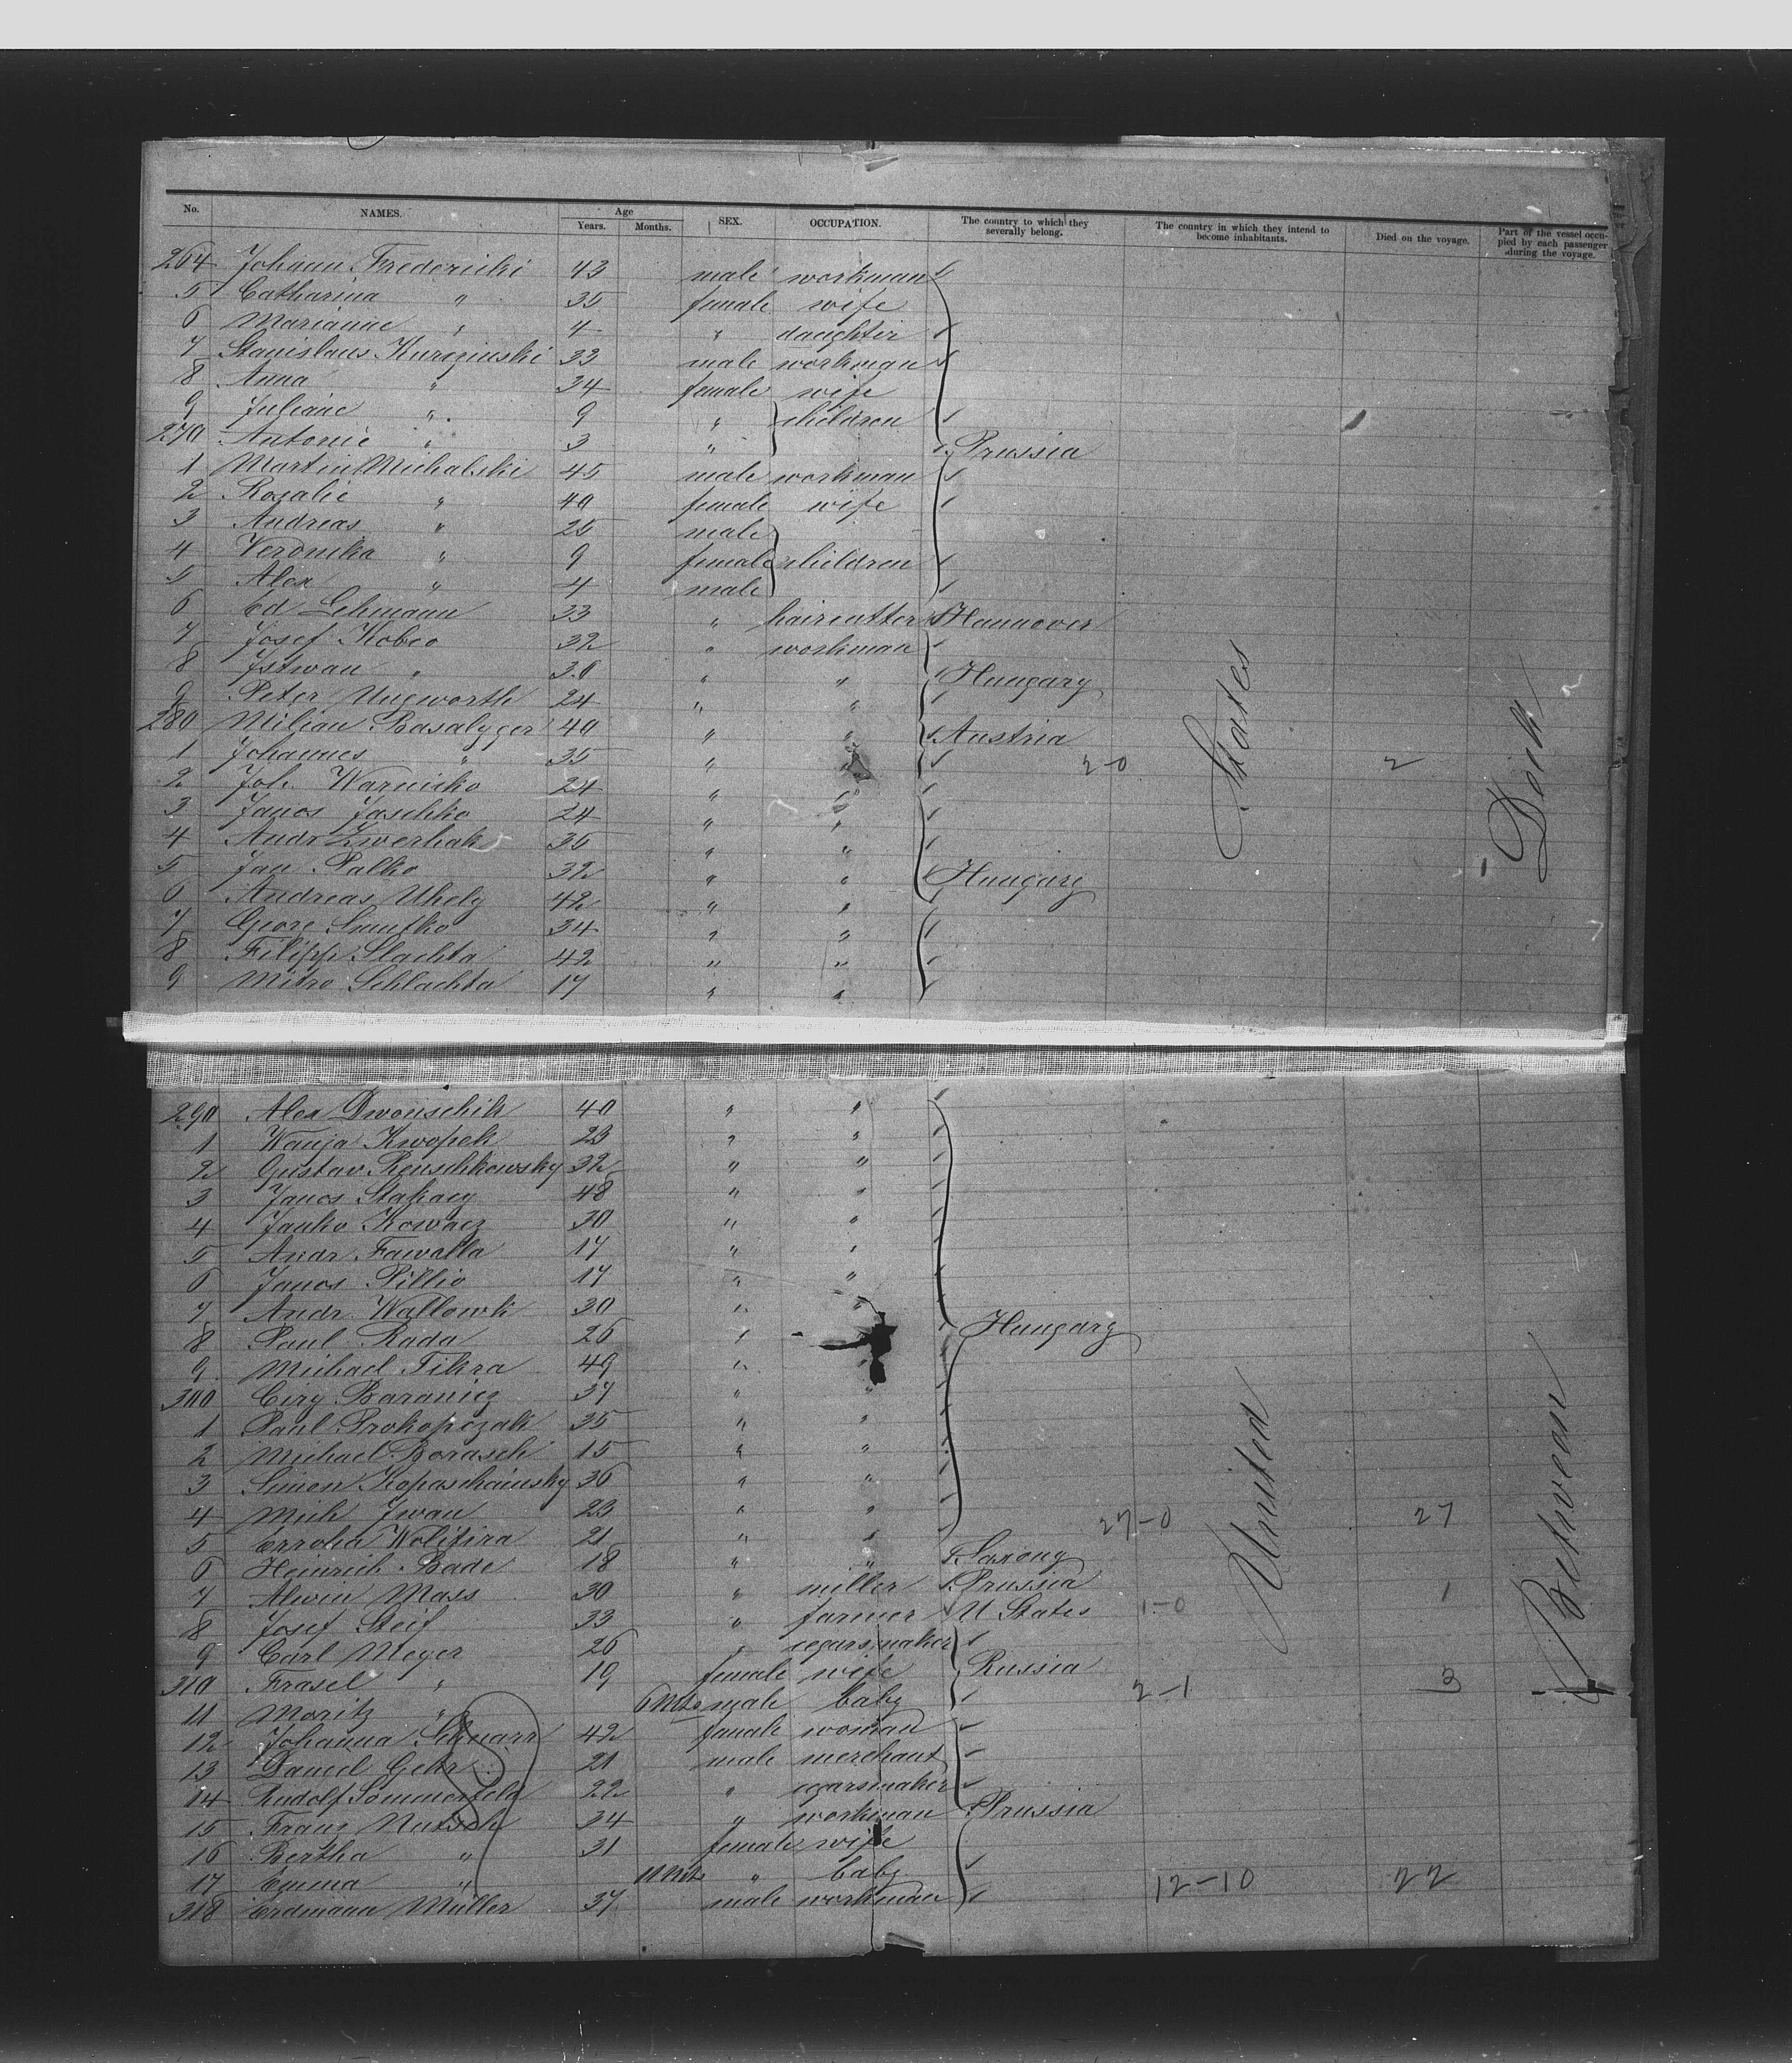 No. NAMES. Age Years. Months. SEX. OCCUPATION. The country to which they severally belong. The country in which they intend to become inhabitants. Died on the voyage. Part of the vessel occupied by each passenger during the voyage.
264 Johann Fredericki 43 male workman
5 Catharina " 35 female wife
6 Marianne " 4 " daughter
7 Stanislaus 33 male workman
8 Anna " 34 female wife
9 Juliane " 9 " children
270 Antonie " 3 " Prussia
1 Martin Michalski 45 male workman
2 Rosalie " 40 female wife
3 Andreas " 25 male
4 Veronika " 9 female children
5 Alex " 4 male
6 Ed Lehmann 33 " haircutter Hannover
7 Josef Kobco 32 " workman
8 Istwan " 36 " " Hungary
9 Peter Ungworth 24 " "
280 Milian Basalyger 40 " " Austria
1 Johannes " 35 " " 2-0 2
2 Joh. Warnicko 24 " "
3 Janos Jaschko 24 " "
4 Andr Zwerhak 35 " "
5 Jan Palko 32 " " Hungary
6 Andreas Uhely 42 " "
7 Georg Smutko 34 " "
8 Filipp Slachta 42 " "
9 Mitro Schlachta 17 " "
States
Deck
290 Alex Dwouschik 40 " "
1 Wanja Kwopek 23 " "
2 Gustav Reuschkowsky 32 " "
3 Janos 48 " "
4 Janko Kowacz 30 " "
5 Andr. Fawalla 17 " "
6 Janos Pillio 17 " "
7 Andr. Wallowk 30 " "
8 Paul Rada 26 " " Hungary
9 Michael Tikra 49 " "
300 Ciry Baranicz 37 " "
1 Paul Prokopczak 35 " "
2 Michael Borasch 15 " "
3 Simon Kopaschainsky 36 " "
4 Mich Iwan 23 " " 27-0 27
5 21 " "
6 Heinrich Bade 18 " " Saxony
7 Alwin Mass 30 " miller Prussia
8 Josef Steif 33 " farmer U States 1-0 1
9 Carl Meyer 26 " cegarsmaker
310 Frasel " 19 female wife Russia
11 Moritz " 6 Mts male baby 2-1 3
12 Johanna Schnarr 42 female woman
13 Daniel Gehr 21 male merchant
14 Rudolf Sommerfeld 22 " cgarsmaker
15 Franz 34 " workman Prussia
16 Bertha " 31 female wife
17 Emma " 11 Mts " baby 12-10 22
318 Erdmann Müller 37 male workman
United
Between